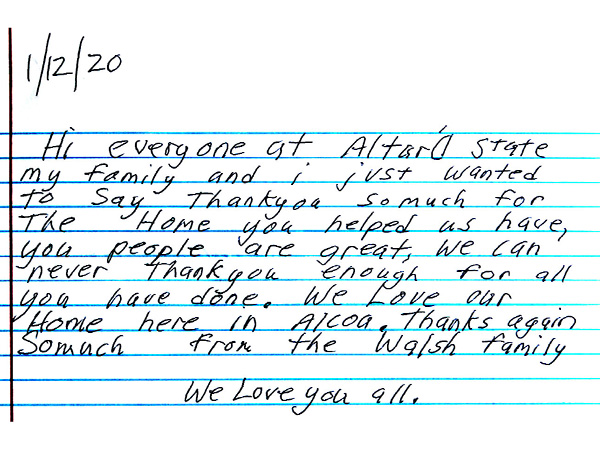 1/12/20
Hi everyone at Altar'd State
my family and i just wanted
to Say Thankyou so much for
The Home you helped us have,
you people are great, we can
never thankyou enough for all
you have done. We Love our
Home here in Alcoa. Thanks again
Somuch from the Walsh family
We Love you all.